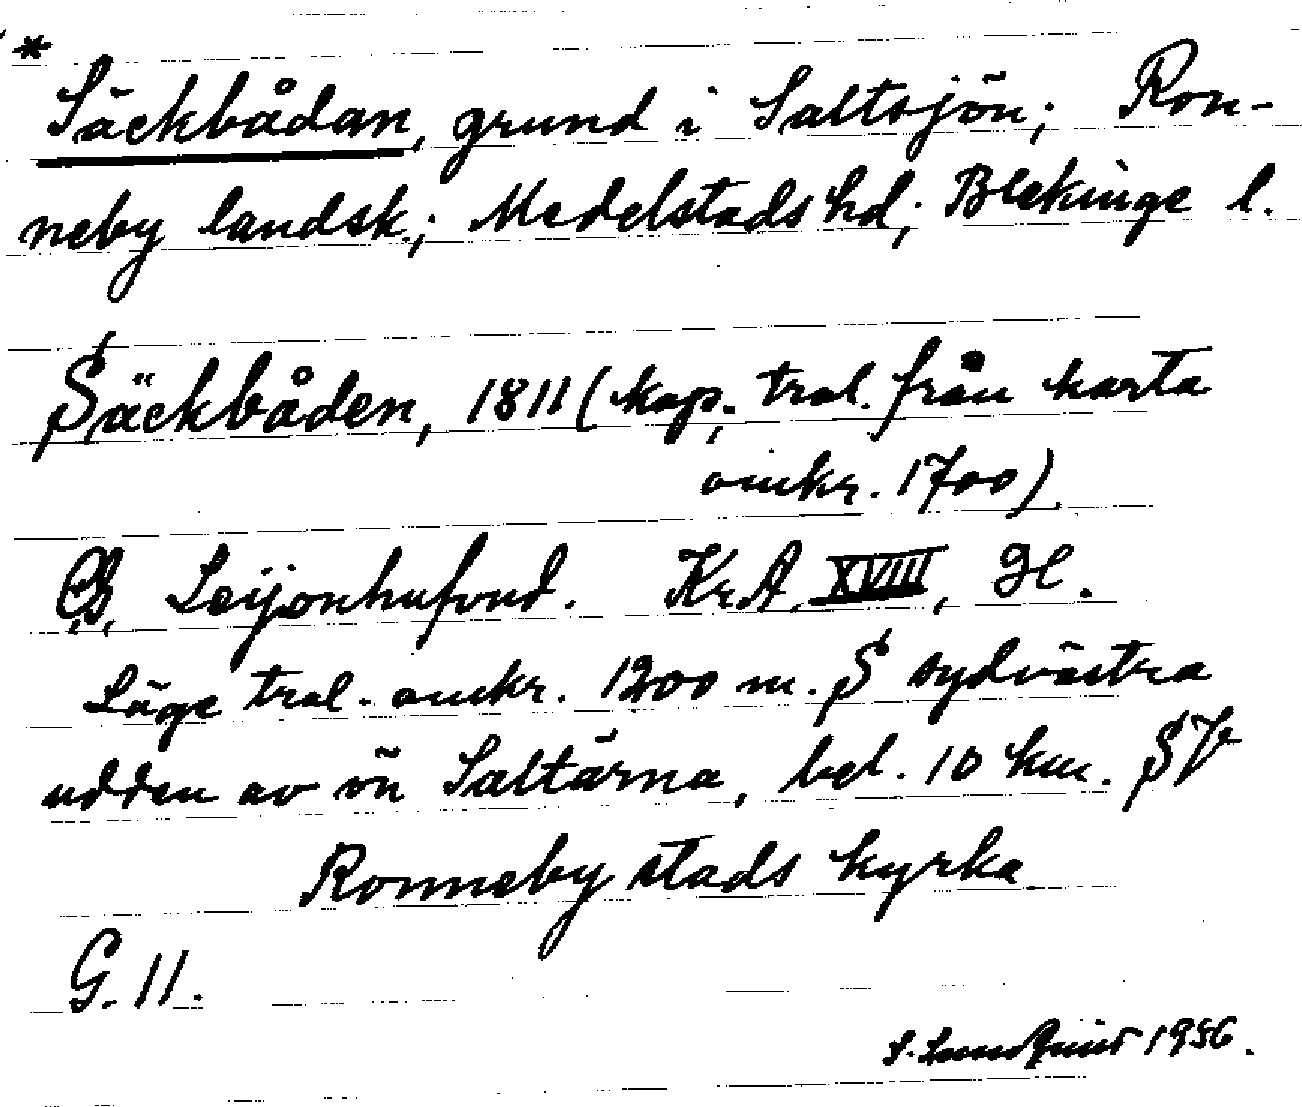 * Säckbådan, grund i Saltsjön; Ron-
neby landsk.; Medelstads hd; Blekinge l.
Säckbåden, 1811 (kop. trol. från karta
omkr. 1700).
C.B. Leijonhufvud. Kr.A. XVIII, H.
Läge trol. omkr. 1200 m. S sydvästra
udden av ön Saltärna, bel. 10 km. SV
Ronneby stads kyrka
G. 11.
S. Lundquist 1956.